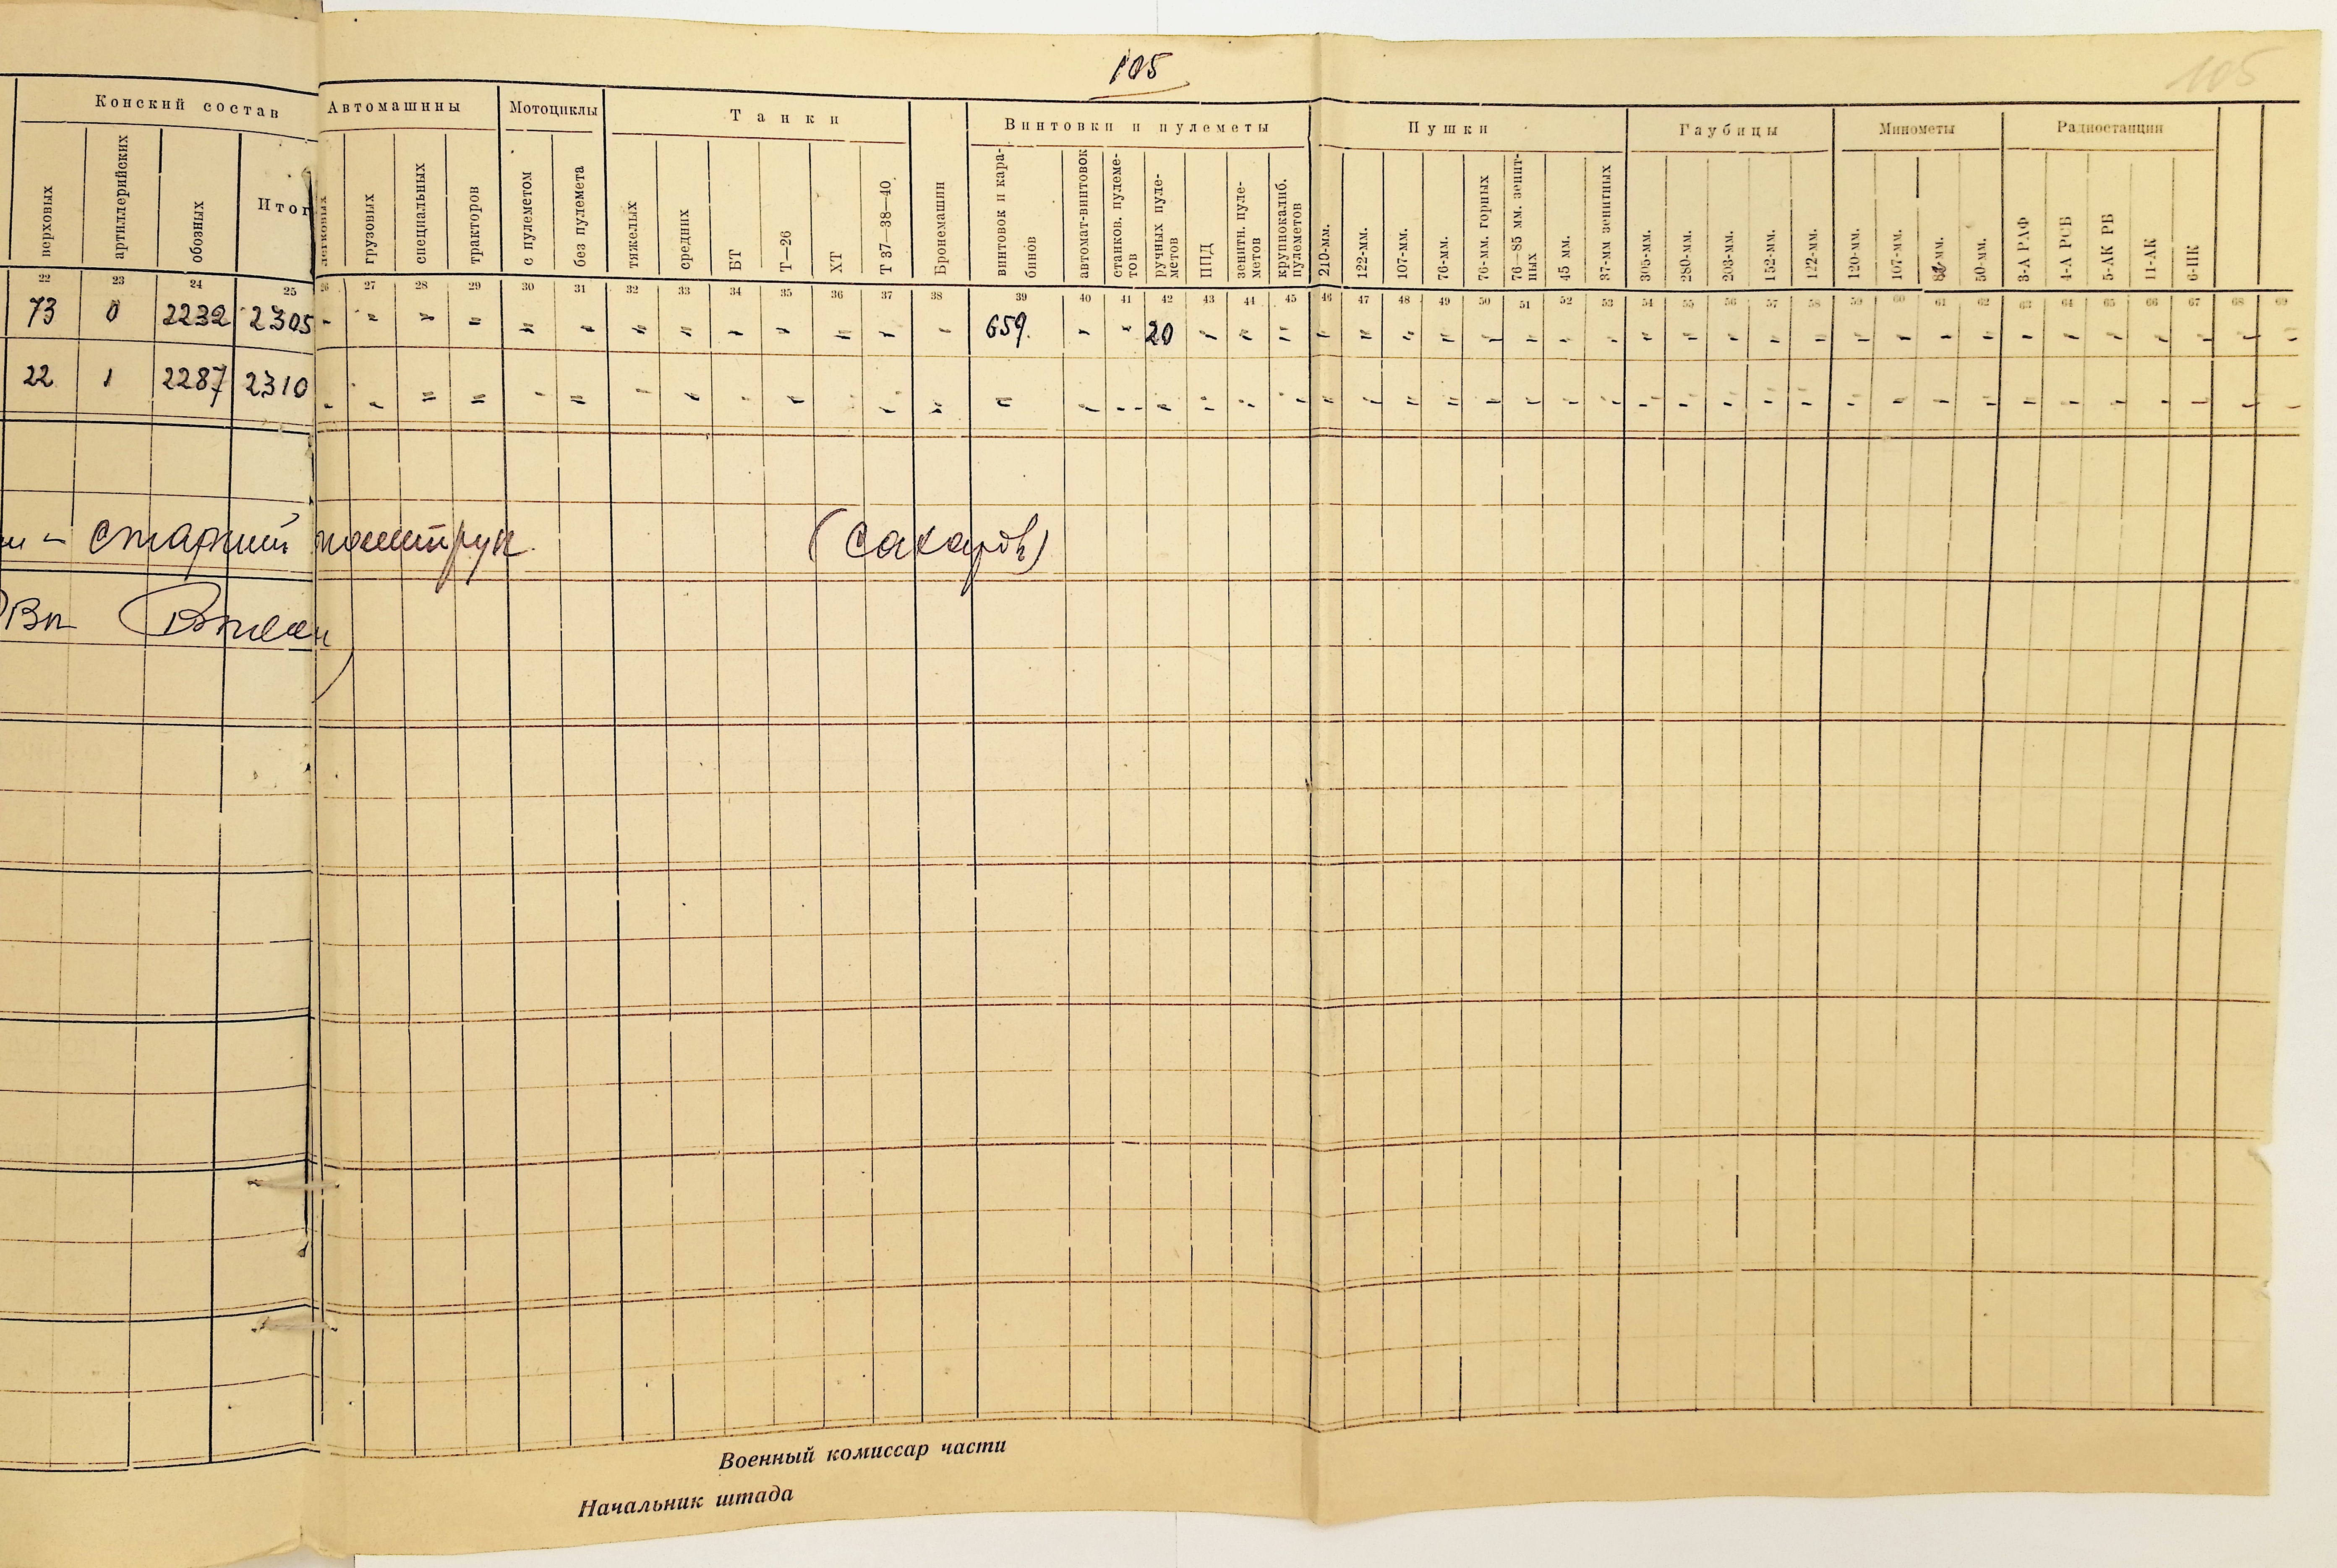 105
105
Конский состав Автомашины Мотоциклы Танки Винтовки и пулеметы Пушки Гаубицы Минометы Радиостанции
верховых артиллерийских обозных Итог легковых грузовых специальных тракторов с пулеметом без пулемета тяжелых средних БТ Т—26 ХТ Т 37—38—40 Бронемашин винтовок и кара-бинов автомат-винтовок станков. пулеме-тов ручных пуле-метов ППД зенитн. пуле-метов крупнокалиб. пулеметов 210-мм. 122-мм. 107-мм. 76-мм. 76-мм. горных 76—85 мм. зенит-ных 45 мм. 37-мм зенитных 305-мм. 280-мм. 203-мм. 152-мм. 122-мм. 120-мм. 107-мм. мм. 50-мм. 3-А РАФ 4-А РСБ 5-АК РБ 11-АК 6-ПК
22 23 24 25 26 27 28 29 30 31 32 33 34 35 36 37 38 39 40 41 42 43 44 45 46 47 48 49 50 51 52 53 54 55 56 57 58 59 60 61 62 63 64 65 66 67 68 69
73 0 2232 2305 - " " " " " " " " " " " - 659. " " 20 " " " " " " " " " " " " " " " " " " " " " " " " " " "
22 1 2287 2310 - " " " " " " " " " " " " " " " " " " " " " " " " " " " " " " " " " " " " " " " " " " " "
– старший политрук (Сахаров)
Военный комиссар части
Начальник штада